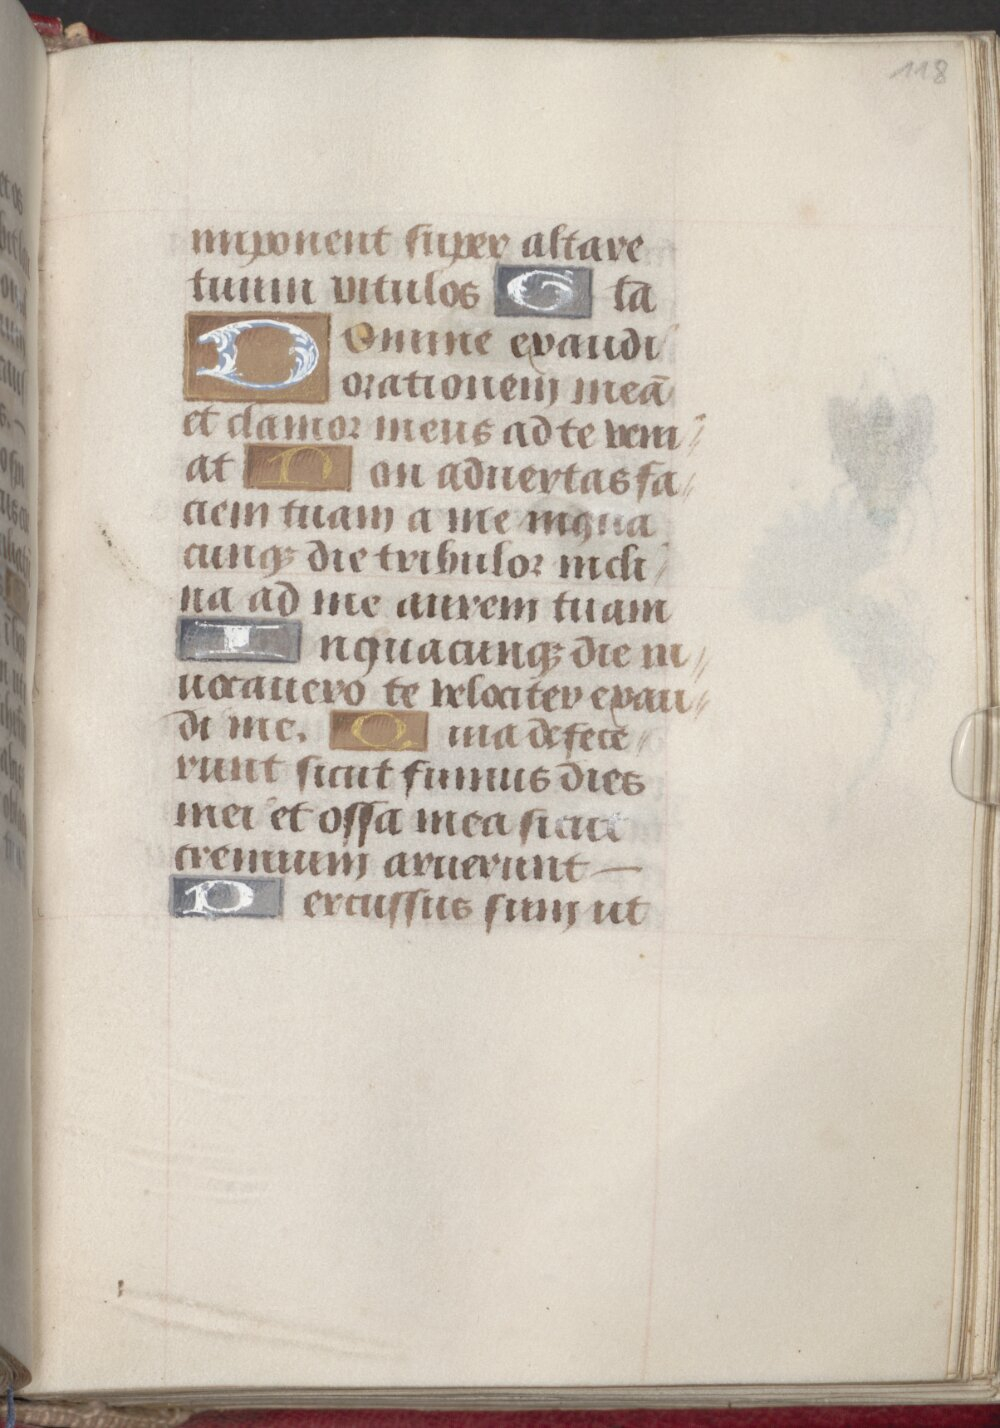 118
imponent super altare
tuum vitulos G ła
Domine exaudi
orationem meā
et clamor meus ad te veni
at Non advertas fa
ciem tuam a me inqua
cunqꝫ die tribulor incli
na ad me aurem tuam
Inquacunqꝫ die in
vocavero te velociter exau
di me. Quia defece
runt sicut fumus dies
mei et ossa mea sicut
cremium aruerunt
Percussus sum ut